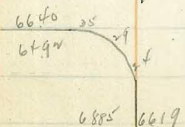 6640 35
6492 29
24
6885 6619